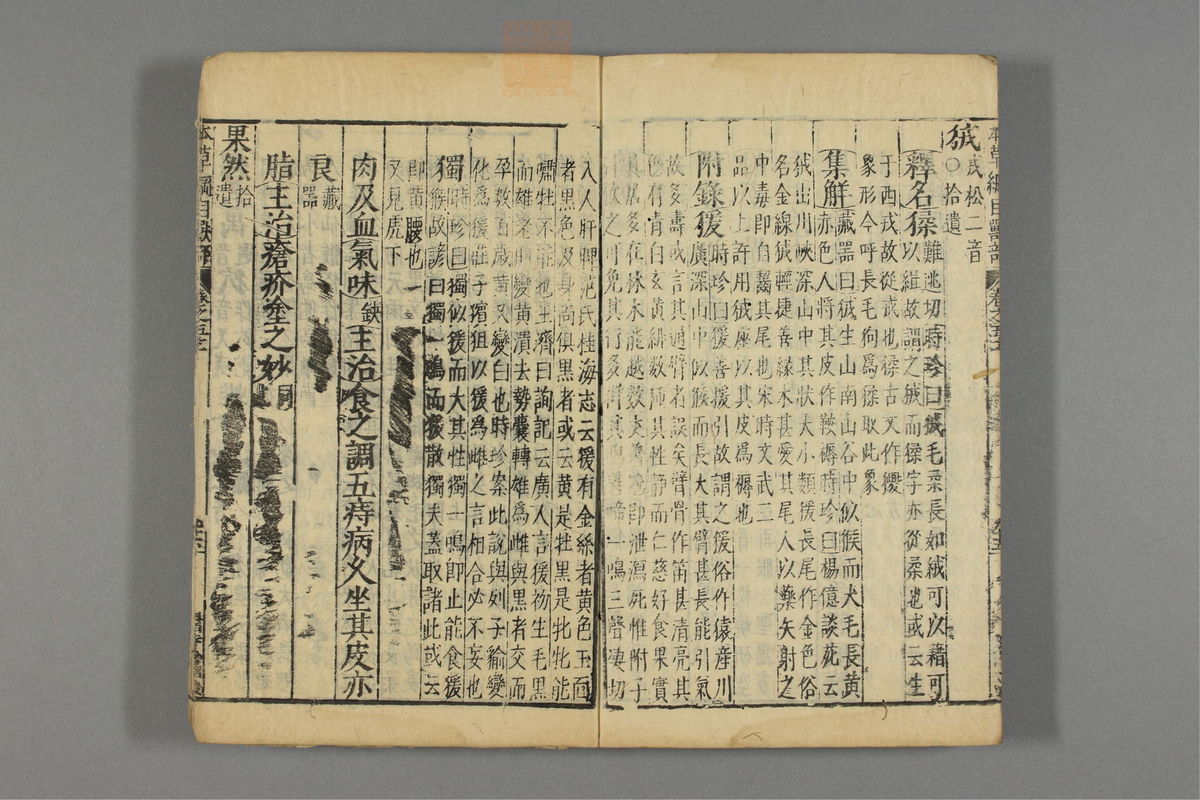 本草綱目獸部
狨戎松二音
〇拾遺
釋名猱難逃切時珍曰狨毛柔長如絨可以藉可
以緝故謂之狨而猱字亦從柔也或云生
于西戎故從戎也猱古文作夒
象形今呼長毛狗爲猱取此象
集解藏器曰狨生山南山谷中似猴而大毛長黄
赤色人將其皮作鞍褥時珍曰楊億談苑云
狨出川峽深山中其狀大小類猨長尾作金色俗
名金線狨輕捷善緣木甚愛其尾人以藥矢射之
中毒即自齧其尾也宋時文武三
品以上許用狨座以其皮爲褥也
附錄猨時珍曰猨善援引故謂之猨俗作猿産川
廣深山中似猴而長大其臂甚長能引氣
故多壽或言其通臂者誤矣臂骨作笛甚清亮其
色有青白玄黄緋數種其性静而仁慈好食果實
其居多在林木能越數丈著地即泄瀉死惟附子
汁飲之可免其行多羣其鳴善啼一鳴三聲凄切
入人肝脾范氏桂海志云猨有金絲者黄色玉面
者黑色及身面俱黑者或云黄是牡黑是牝牝能
嘯牡不能也王濟曰詢記云廣人言猨初生毛黑
而雄老則變黄潰去勢囊轉雄爲雌與黑者交而
孕數百歲黄又變白也時珍案此說與列子貐變
化爲猨莊子猵狙以猨爲雌之言相合必不妄也
獨時珍曰獨似猨而大其性獨一鳴即止能食猨
猴故諺曰獨一鳴而猨散獨夫蓋取諸此或云
即黄腰也
又見虎下
肉及血氣味缺主治食之調五痔病久坐其皮亦
良藏器
脂主治瘡疥塗之妙同上
果然拾遺
本草綱目獸部